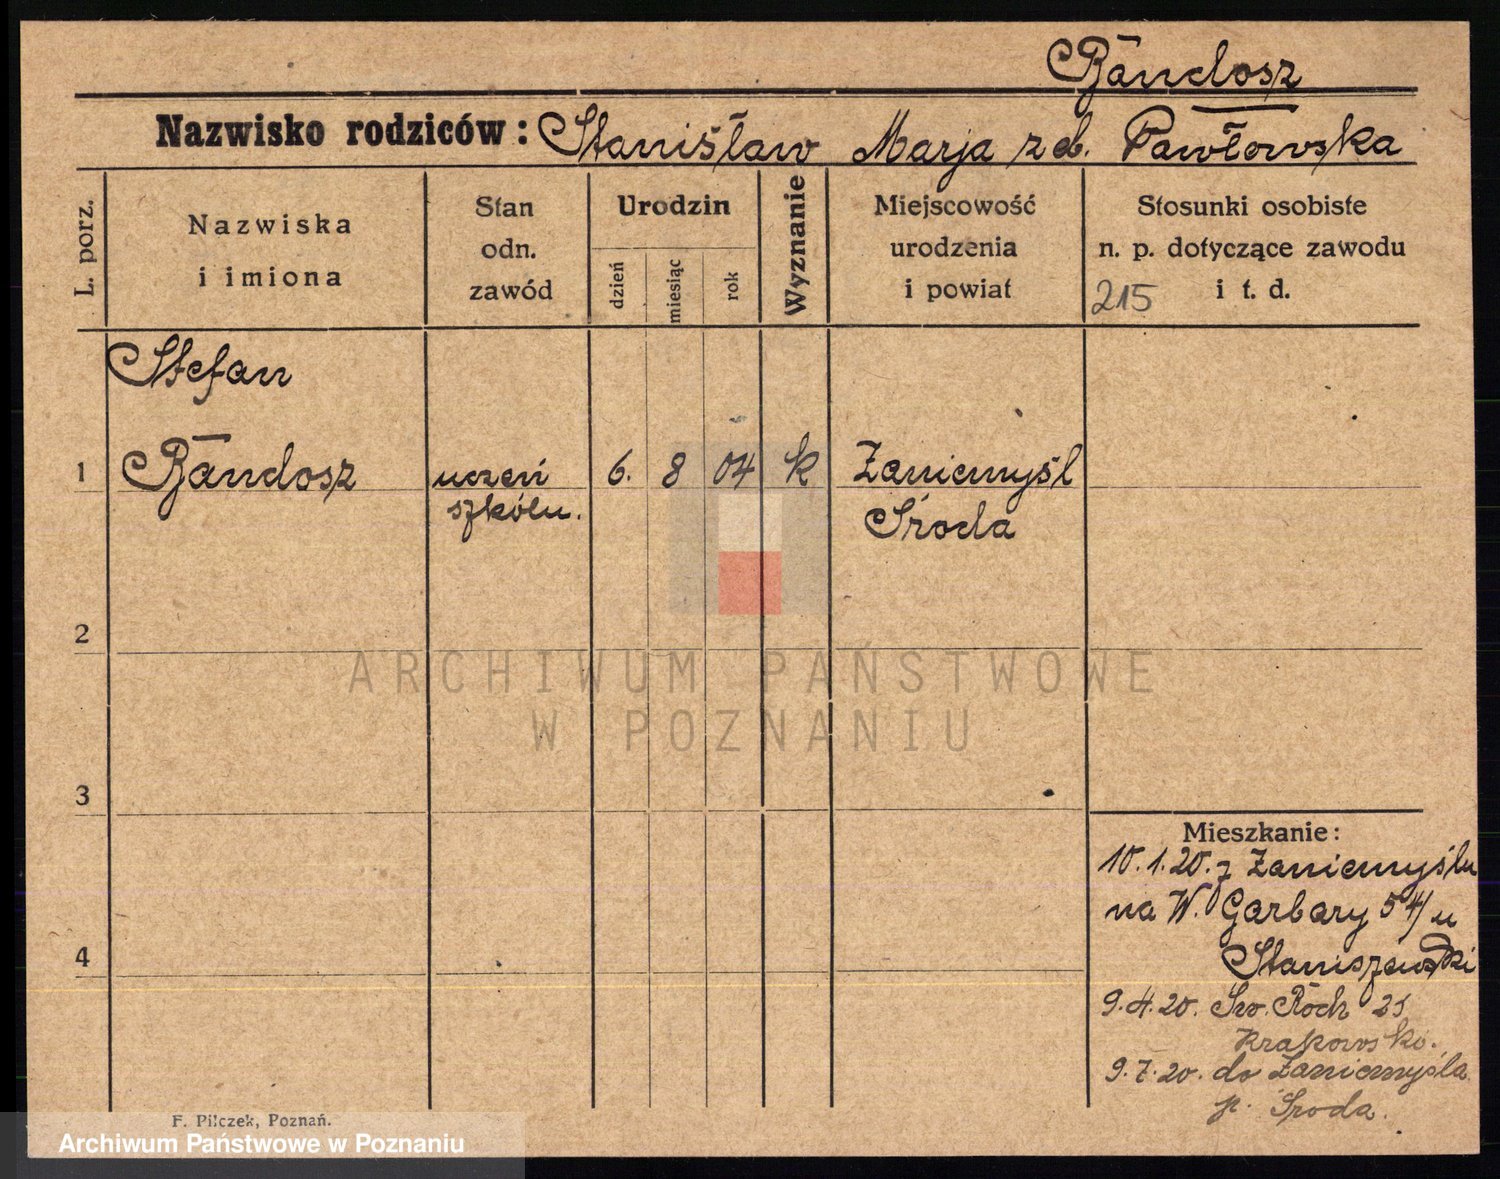 Bandosz
Nazwisko rodziców: Stanisław Marja zd. Pawłowska
L. porz.
Nazwiska
i imiona
Stan
odn.
zawód
Urodzin
dzień
miesiąc
rok
Wyznanie
Miejscowość
urodzenia
i powiat
Stosunki osobiste
n. p. dotyczące zawodu
i t. d.
215
Stefan
1 Bandosz uczeń 6. 8 04 k Zaniemyśl
szkóln. Środa
2
ARCHIWUM PAŃSTWOWE
W POZNANIU
3
Mieszkanie:
10.1.20. z Zaniemyślu
na W. Garbary 54/u
4
Staniszewski
9.4.20. Św. Roch 25
Krakowsk.
9.7.20. do Zaniemyśla
p. Środa.
F. Pilczek, Poznań.
Archiwum Państwowe w Poznaniu